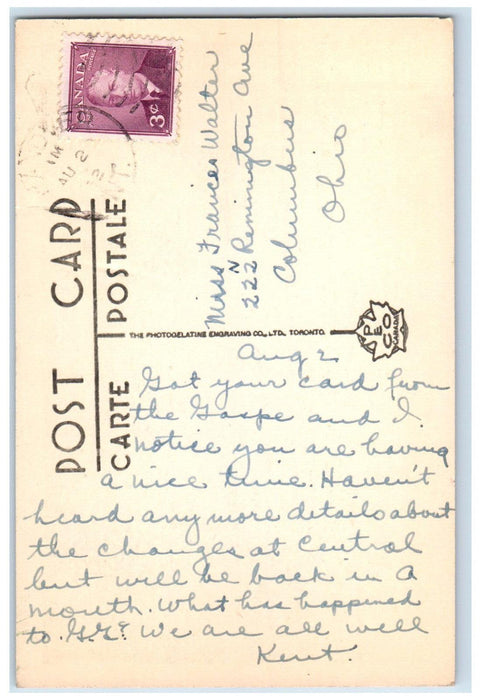 CANADA
3¢
AU 2
POST CARD
CARTE POSTALE
THE PHOTOGELATINE ENGRAVING CO., LTD., TORONTO.
PECO
CANADA
Miss Frances Walter
222 N Remington Ave
Columbus
Ohio
Aug 2
Got your card from
the Gaspe and I
notice you are having
a nice time. Haven't
heard any more details about
the changes at Central
but will be back in a
month. What has happened
to G.G.? We are all well
Kent.